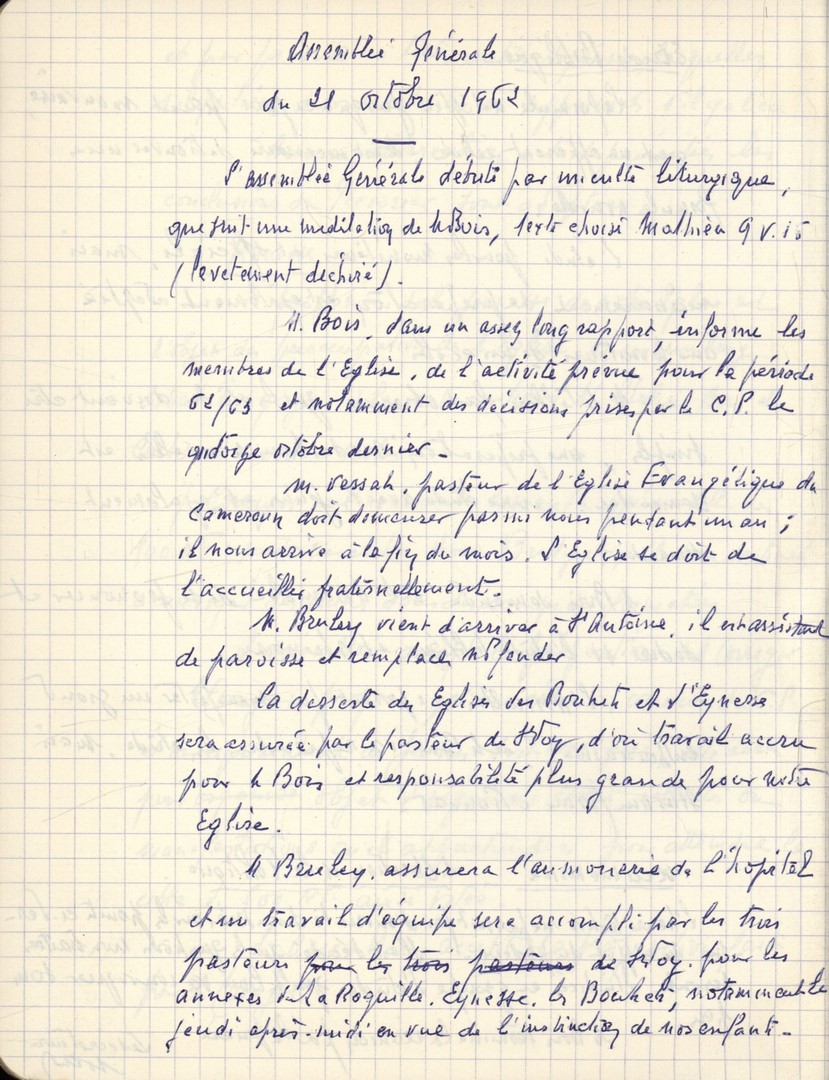 Assemblée Générale
du 21 octobre 1962
L'assemblée Générale débute par un culte liturgique,
que suit une méditation de M Bois, texte choisi Mathieu 9 v. 15
(le vêtement déchiré).
M. Bois, dans un assez long rapport, informe les
membres de l'Eglise, de l'activité prévue pour la période
62/63 et notamment des décisions prises par le C.P. le
quatorze octobre dernier -
M. Vessah, pasteur de l'Eglise Evangélique du
Cameroun doit demeurer parmi nous pendant un an ;
il nous arrive à la fin du mois. L'Eglise se doit de
l'accueillir fraternellement.
M. Bruley vient d'arriver à St Antoine, il est assistant
de paroisse et remplace Mr
La desserte des Eglises des Bouhets et d'Eynesse
sera assurée par le pasteur de Ste Foy, d'où travail accru
pour M Bois et responsabilité plus grande pour notre
Eglise.
M Bruley, assurera l'aumonerie de l'hôpital
et un travail d'équipe sera accompli par les trois
pasteurs pour les trois pasteurs de Ste Foy. pour les
annexes de La Roquille, Eynesse, les Bouhets, notamment le
jeudi après-midi en vue de l'instruction de nos enfants -